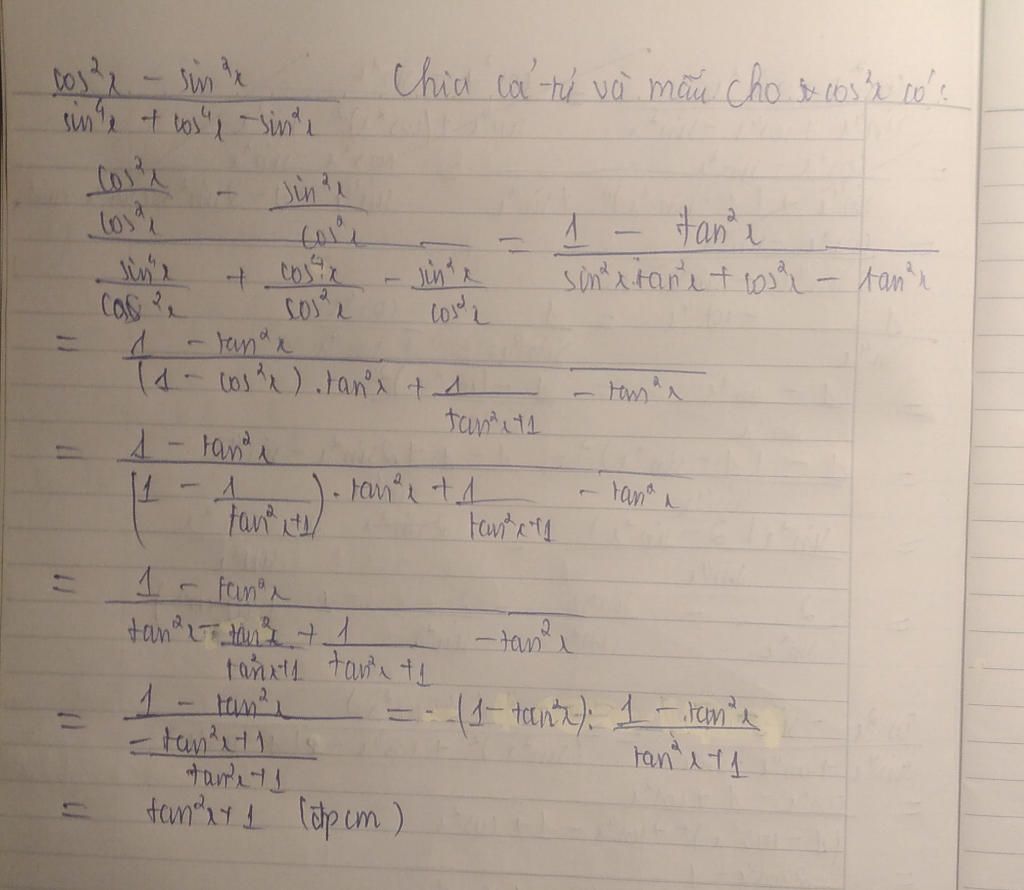 cos²x - sin²x / sin⁴x + cos⁴x - sin²x Chia cả tử và mẫu cho cos²x có:
cos²x/cos²x - sin²x/cos²x / sin⁴x/cos²x + cos⁴x/cos²x - sin²x/cos²x = 1 - tan²x / sin²x.tan²x + cos²x - tan²x
= 1 - tan²x / (1 - cos²x).tan²x + 1/tan²x+1 - tan²x
= 1 - tan²x / (1 - 1/tan²x+1).tan²x + 1/tan²x+1 - tan²x
= 1 - tan²x / tan²x - tan²x/tan²x+1 + 1/tan²x+1 - tan²x
= 1 - tan²x / -tan²x+1/tan²x+1 = (1-tan²x): 1-tan²x/tan²x+1
= tan²x+1 (đpcm)